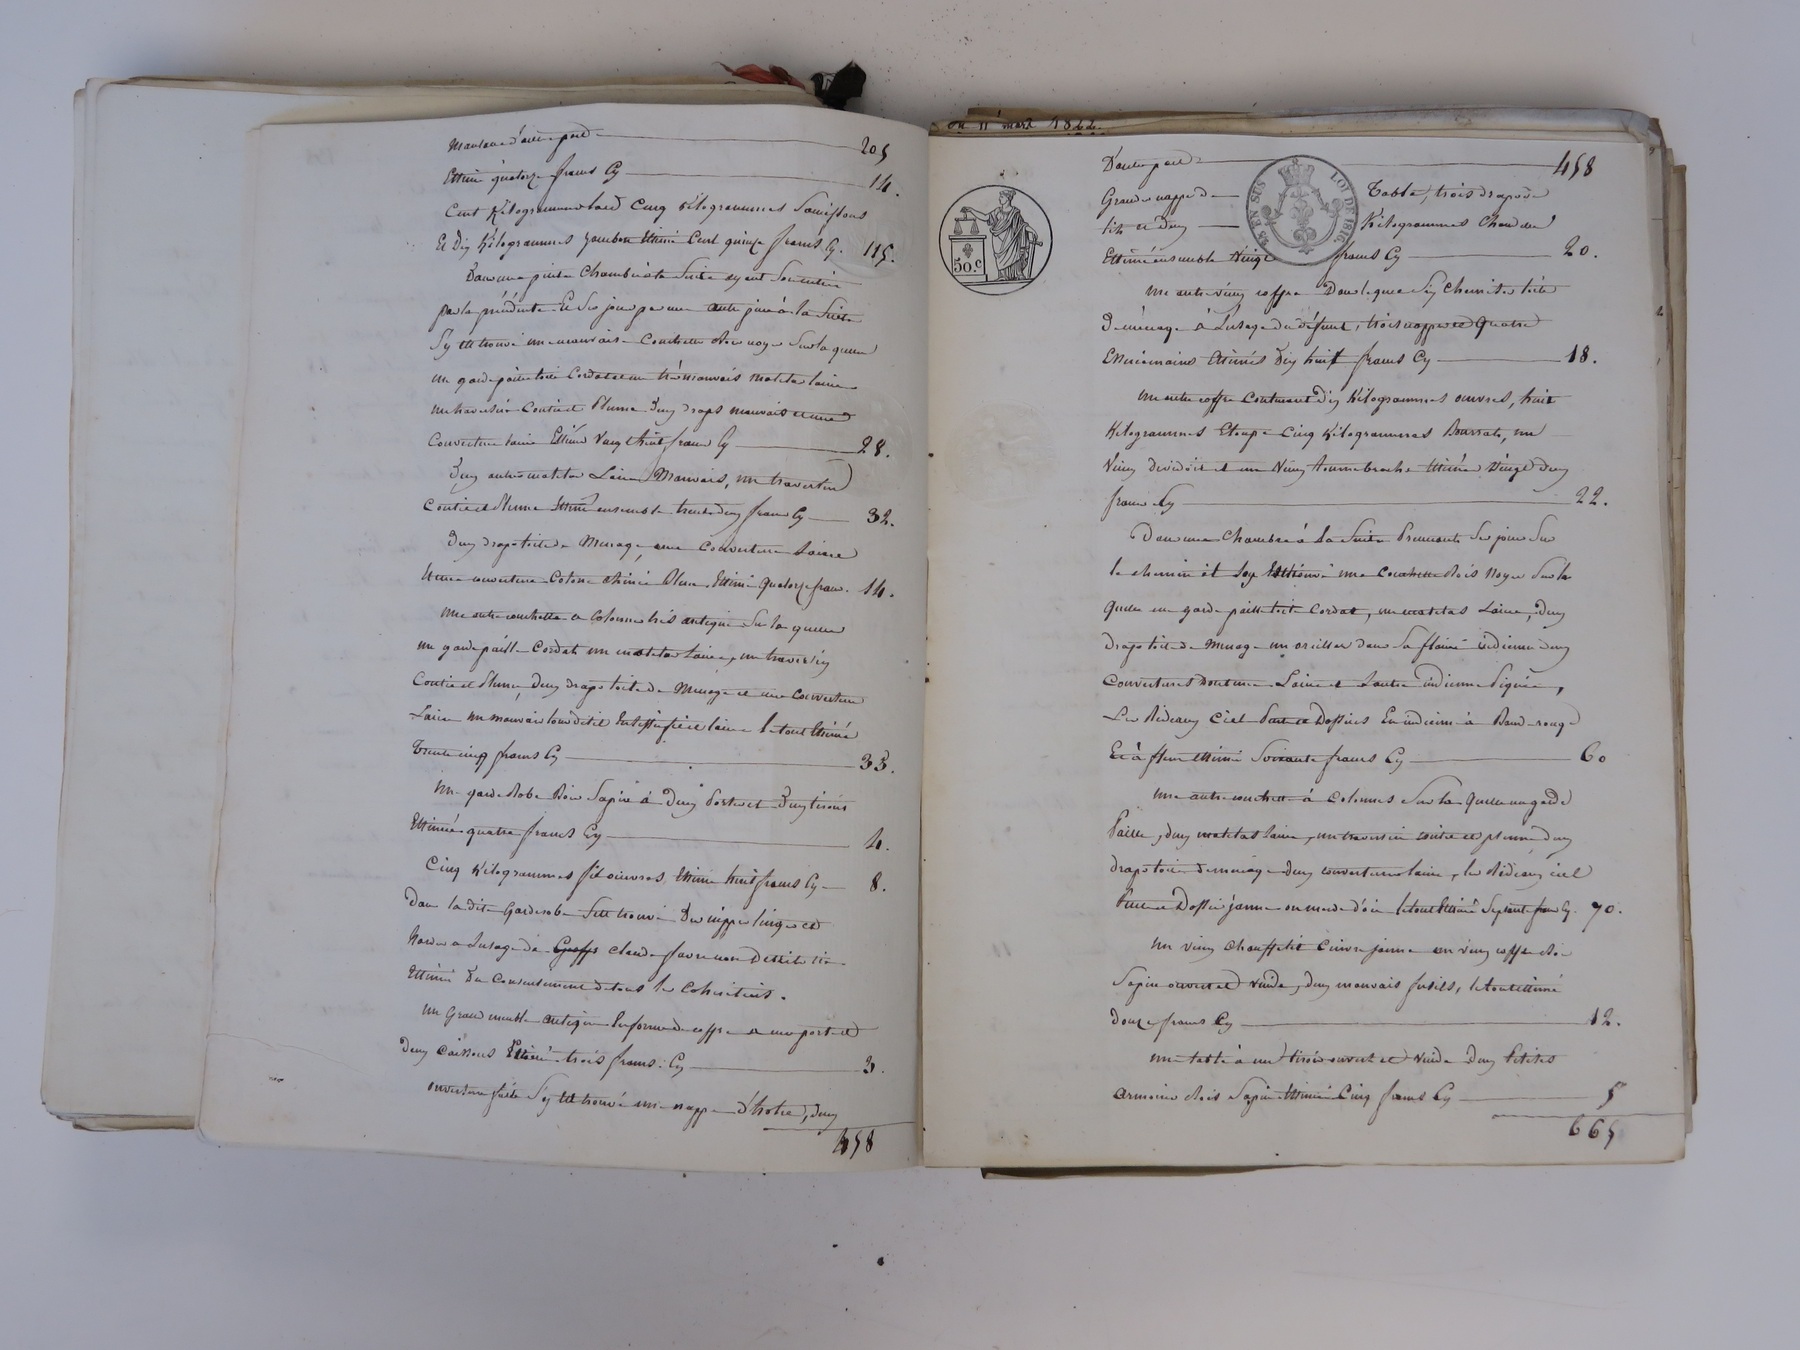 Montant d'autre part 205
Estimé quatorze francs Cy 14.
Cent Kilogrammes lard Cinq Kilogrammes Saucissons
Et dix Kilogrammes jambon Estimé Cent quinze francs Cy. 115.
Dans une petite Chambre à la Suite ayant Son entrée
par la précédente Et Ses jour par une autre jour à la Suite
S'y est trouvé une mauvaise Couchette Bois noyer Sur la quelle
un garde paille toile Cordat et un très mauvais matelas laine
un traversin Coutil et Plume Deux draps mauvais et une
Couverture laine Estimé Vingt huit francs Cy 28.
Deux autres matelas Laine Mauvais, un traversin
Coutil et Plume Estimé ensemble trente deux francs Cy 32.
Deux draps toile de Menage, une Couverture Laine
Et une couverture Cotonne Estimé Quatorze francs. 14.
Une autre couchette a Colonne très antique Sur la quelle
un garde paille Cordat un matelas Laine, un traversin
Coutil et Plume, Deux draps toile de Menage et une Couverture
Laine un mauvais tour de lit En laine le tout Estimé
Trente cinq francs Cy 35.
Un garde Robe Bois Sapin à Deux Portes et Deux tiroirs
Estimée quatre francs Cy 4.
Cinq Kilogrammes fil œuvres, Estimé huit francs Cy 8.
Dans la dite Garderobe S'est trouvé Des nippes linges et
hardes a l'usage de Claude favre non
Estimé Du Consentement de tous les Cohéritiers.
un Grand meuble antique En forme de coffre a une porte et
Deux Caissons Estimé trois francs. Cy 3.
ouverture faite S'y est trouvé une nappe d'hotel, deux
458
Du 11 mars 1862.
D'autre part 458
Grande nappe de Table, trois draps de
lit et Deux Kilogrammes Chandelle
Estimé ensemble Vingt francs Cy 20.
50.C
LOI DE 1816
Un autre vieux coffre Dans lequel Six Chemises toile
De ménage à L'usage du défunt, trois nappes et Quatre
Essuiemains Estimés Dix huit francs Cy 18.
Un autre coffre Contenant Dix Kilogrammes œuvres, huit
Kilogrammes Etoupe Cinq Kilogrammes Bourrats, un
Vieux devidoir et un Vieux tournebroche Estimé Vingt Deux
francs Cy 22.
Dans une Chambre à La Suite Prennant Ses jours Sur
le chemin Est trouvé une Couchette Bois Noyer Sur la
Quelle un garde paille toile Cordat, un matelas Laine, Deux
draps toile de Menage un oreiller dans Sa flaine indienne deux
Couvertures dont une Laine et L'autre indienne Piquée,
Les Rideaux Ciel Pente et Dossier En indienne à Bande rouge
Et à fleur Estimé Soixante francs Cy 60
Une autre couchette à Colonnes Sur La Quelle un garde
Paille, Deux matelas laine, un traversin coutil et plume deux
draps toile de menage Deux couvertures laine, les Rideaux ciel
Pente et Dossier jaune le tout Estimé Septante francs Cy. 70.
Un vieux Chauffelit Cuivre jaune un vieux coffre Bois
Sapin ouvert et vuide, Deux mauvais fusils, le tout Estimé
Douze francs Cy 12.
une table à un tiroir ouvert et vuide Deux Petites
armoires Bois Sapin Estimé Cinq francs Cy 5
665